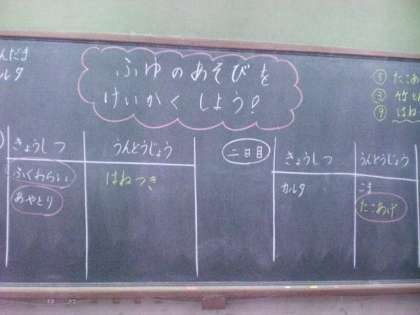 んだま
ルタ
ふゆのあそびを
けいかくしよう!
① たこあ
② 竹と
はね
きょうしつ うんどうじょう
ふくわらい はねつき
あやとり
二日目
きょうしつ うんどうじょう
カルタ こま
たこあげ